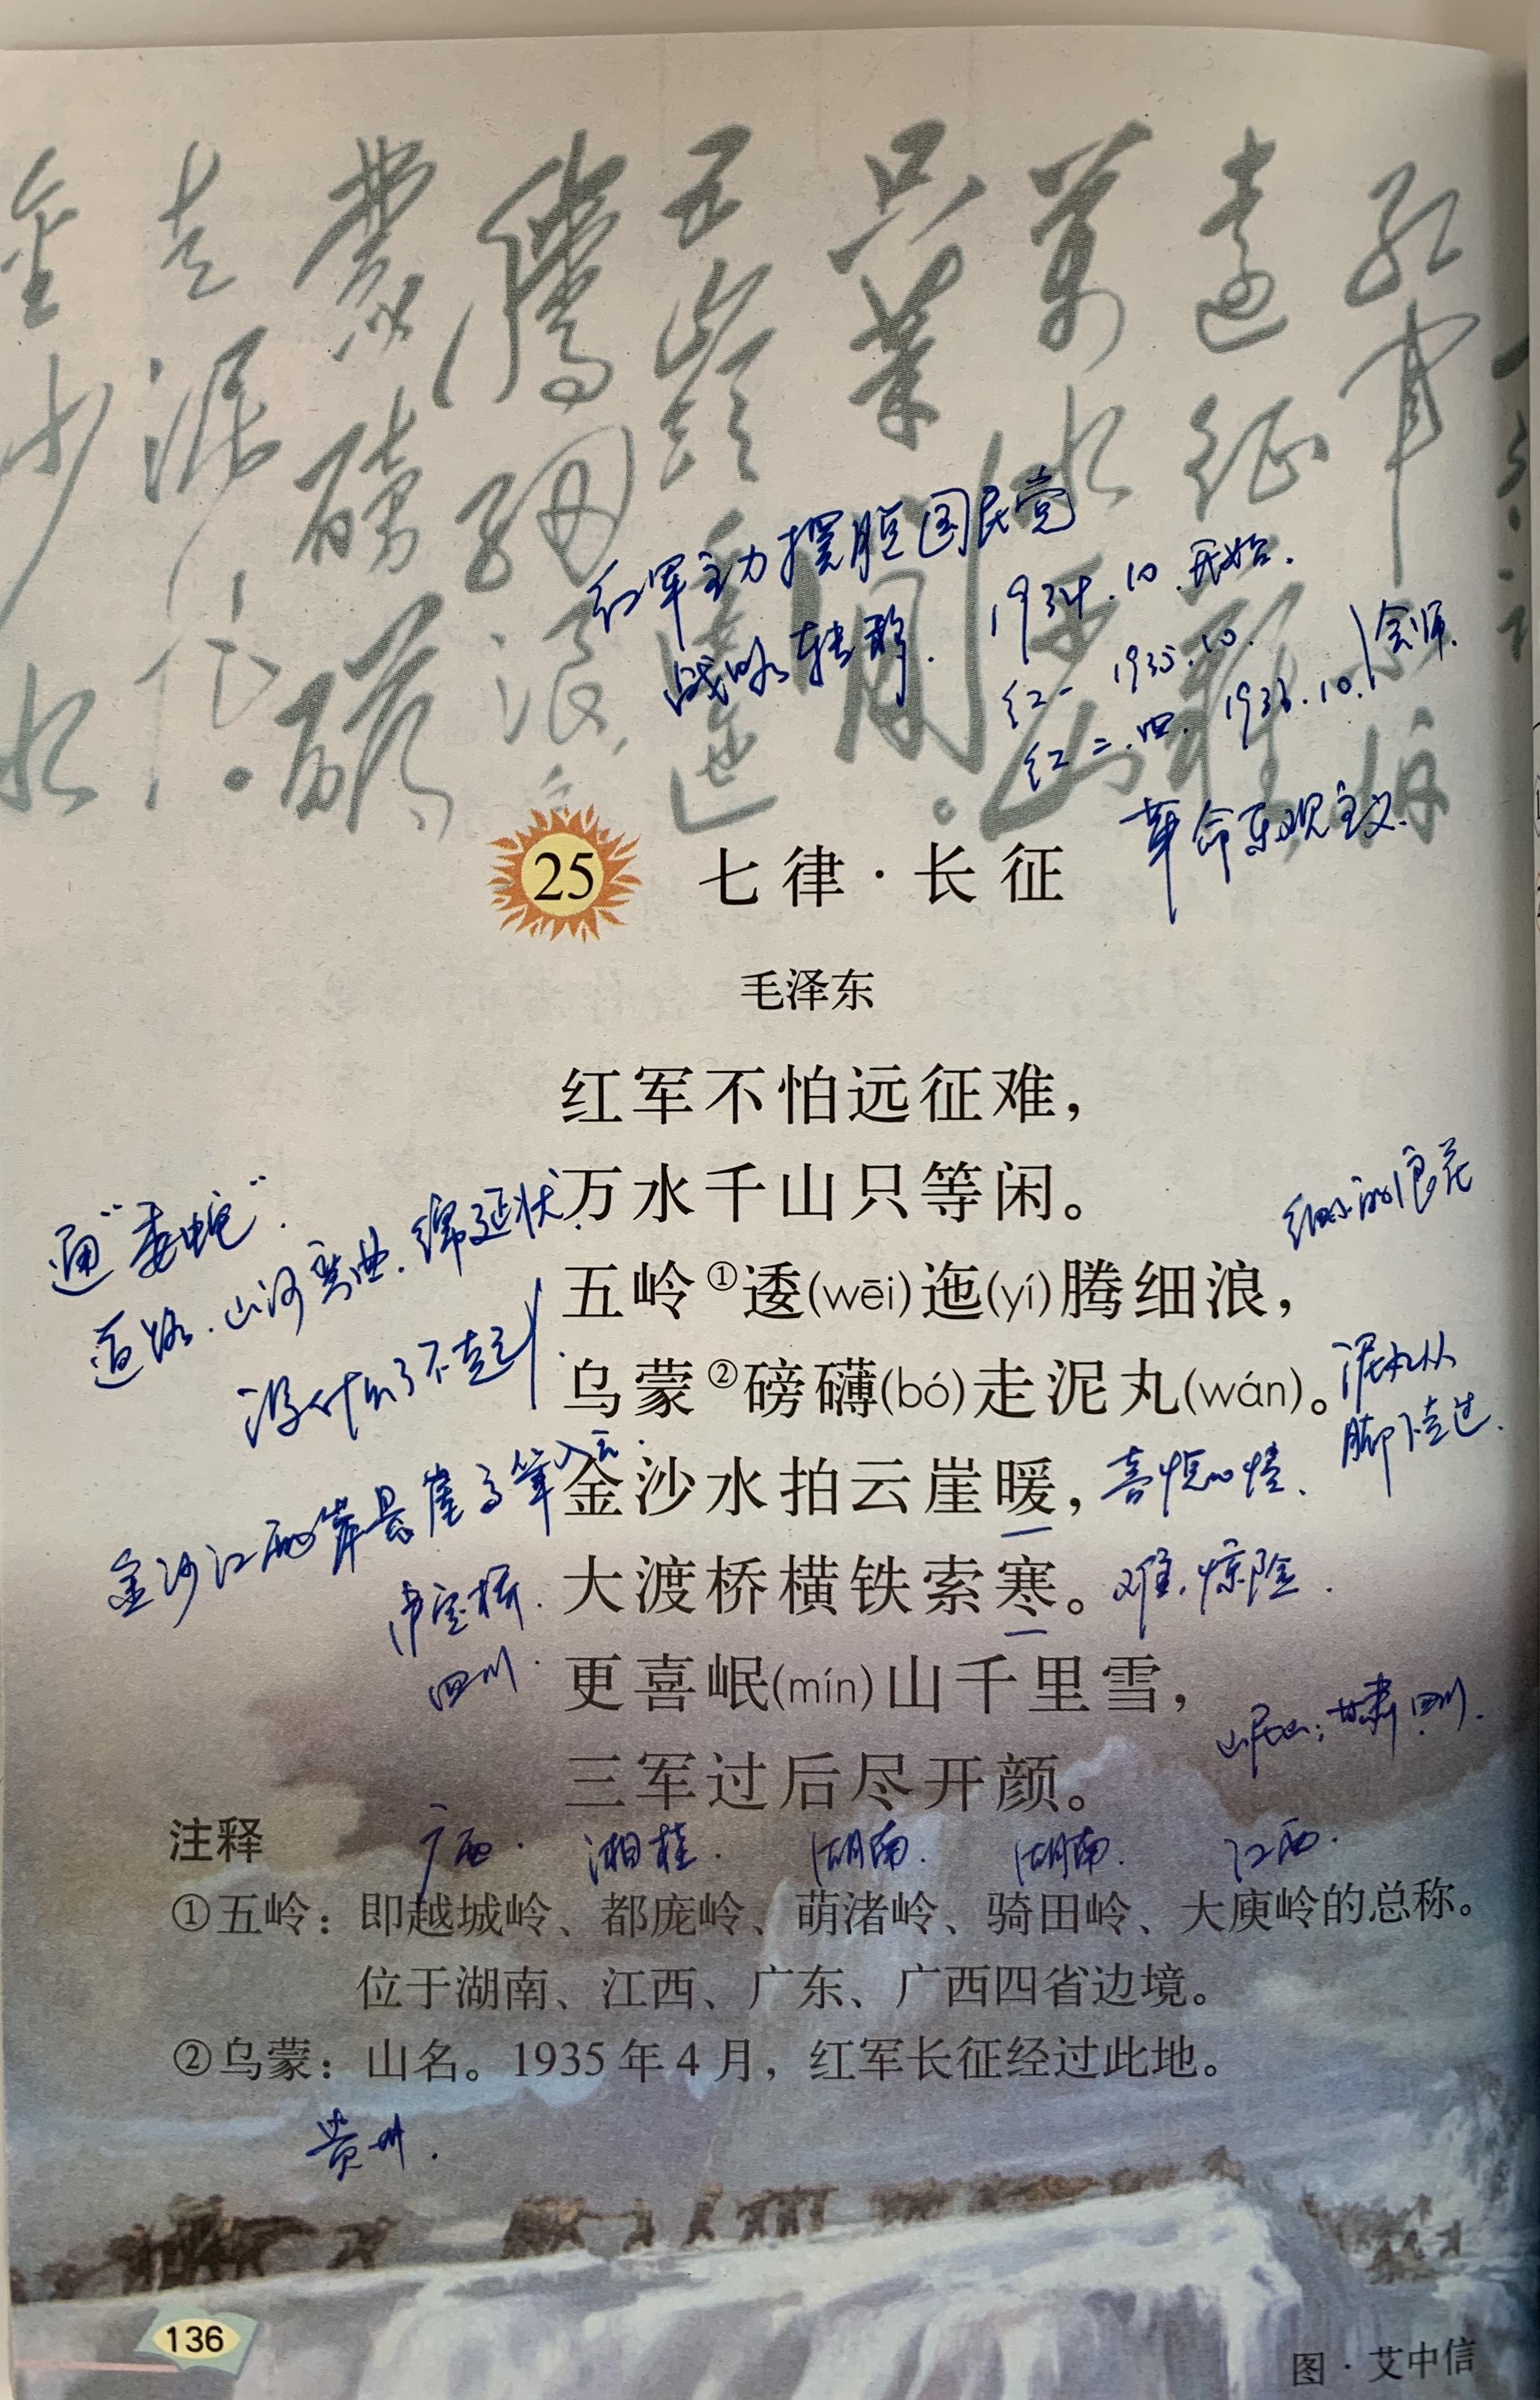 红军不怕
远征难
万水
只等闲。
五岭逶迤
腾细浪
蒙磅礴
走泥丸。
金沙水
红军主力摆脱国民党
战略转移.
1934.10.开始.
红一 1935.10.
红二.四. 1936.10. 会师.
革命乐观主义.
25 七律·长征
毛泽东
红军不怕远征难，
万水千山只等闲。
通“委蛇”.
道路.山河弯曲.绵延状.
细小的浪花
五岭①逶(wēi)迤(yí)腾细浪，
没什么了不起
乌蒙②磅礴(bó)走泥丸(wán)。
泥丸从
脚下走过.
金沙江两岸悬崖高耸入云.
金沙水拍云崖暖，
喜悦心情、
泸定桥.
四川.
大渡桥横铁索寒。
难.惊险.
更喜岷(mín)山千里雪，
岷山：甘肃.四川.
三军过后尽开颜。
注释
广西. 湘桂. 湖南. 湖南. 江西.
①五岭：即越城岭、都庞岭、萌渚岭、骑田岭、大庾岭的总称。
位于湖南、江西、广东、广西四省边境。
②乌蒙：山名。1935年4月，红军长征经过此地。
贵州.
136
图·艾中信